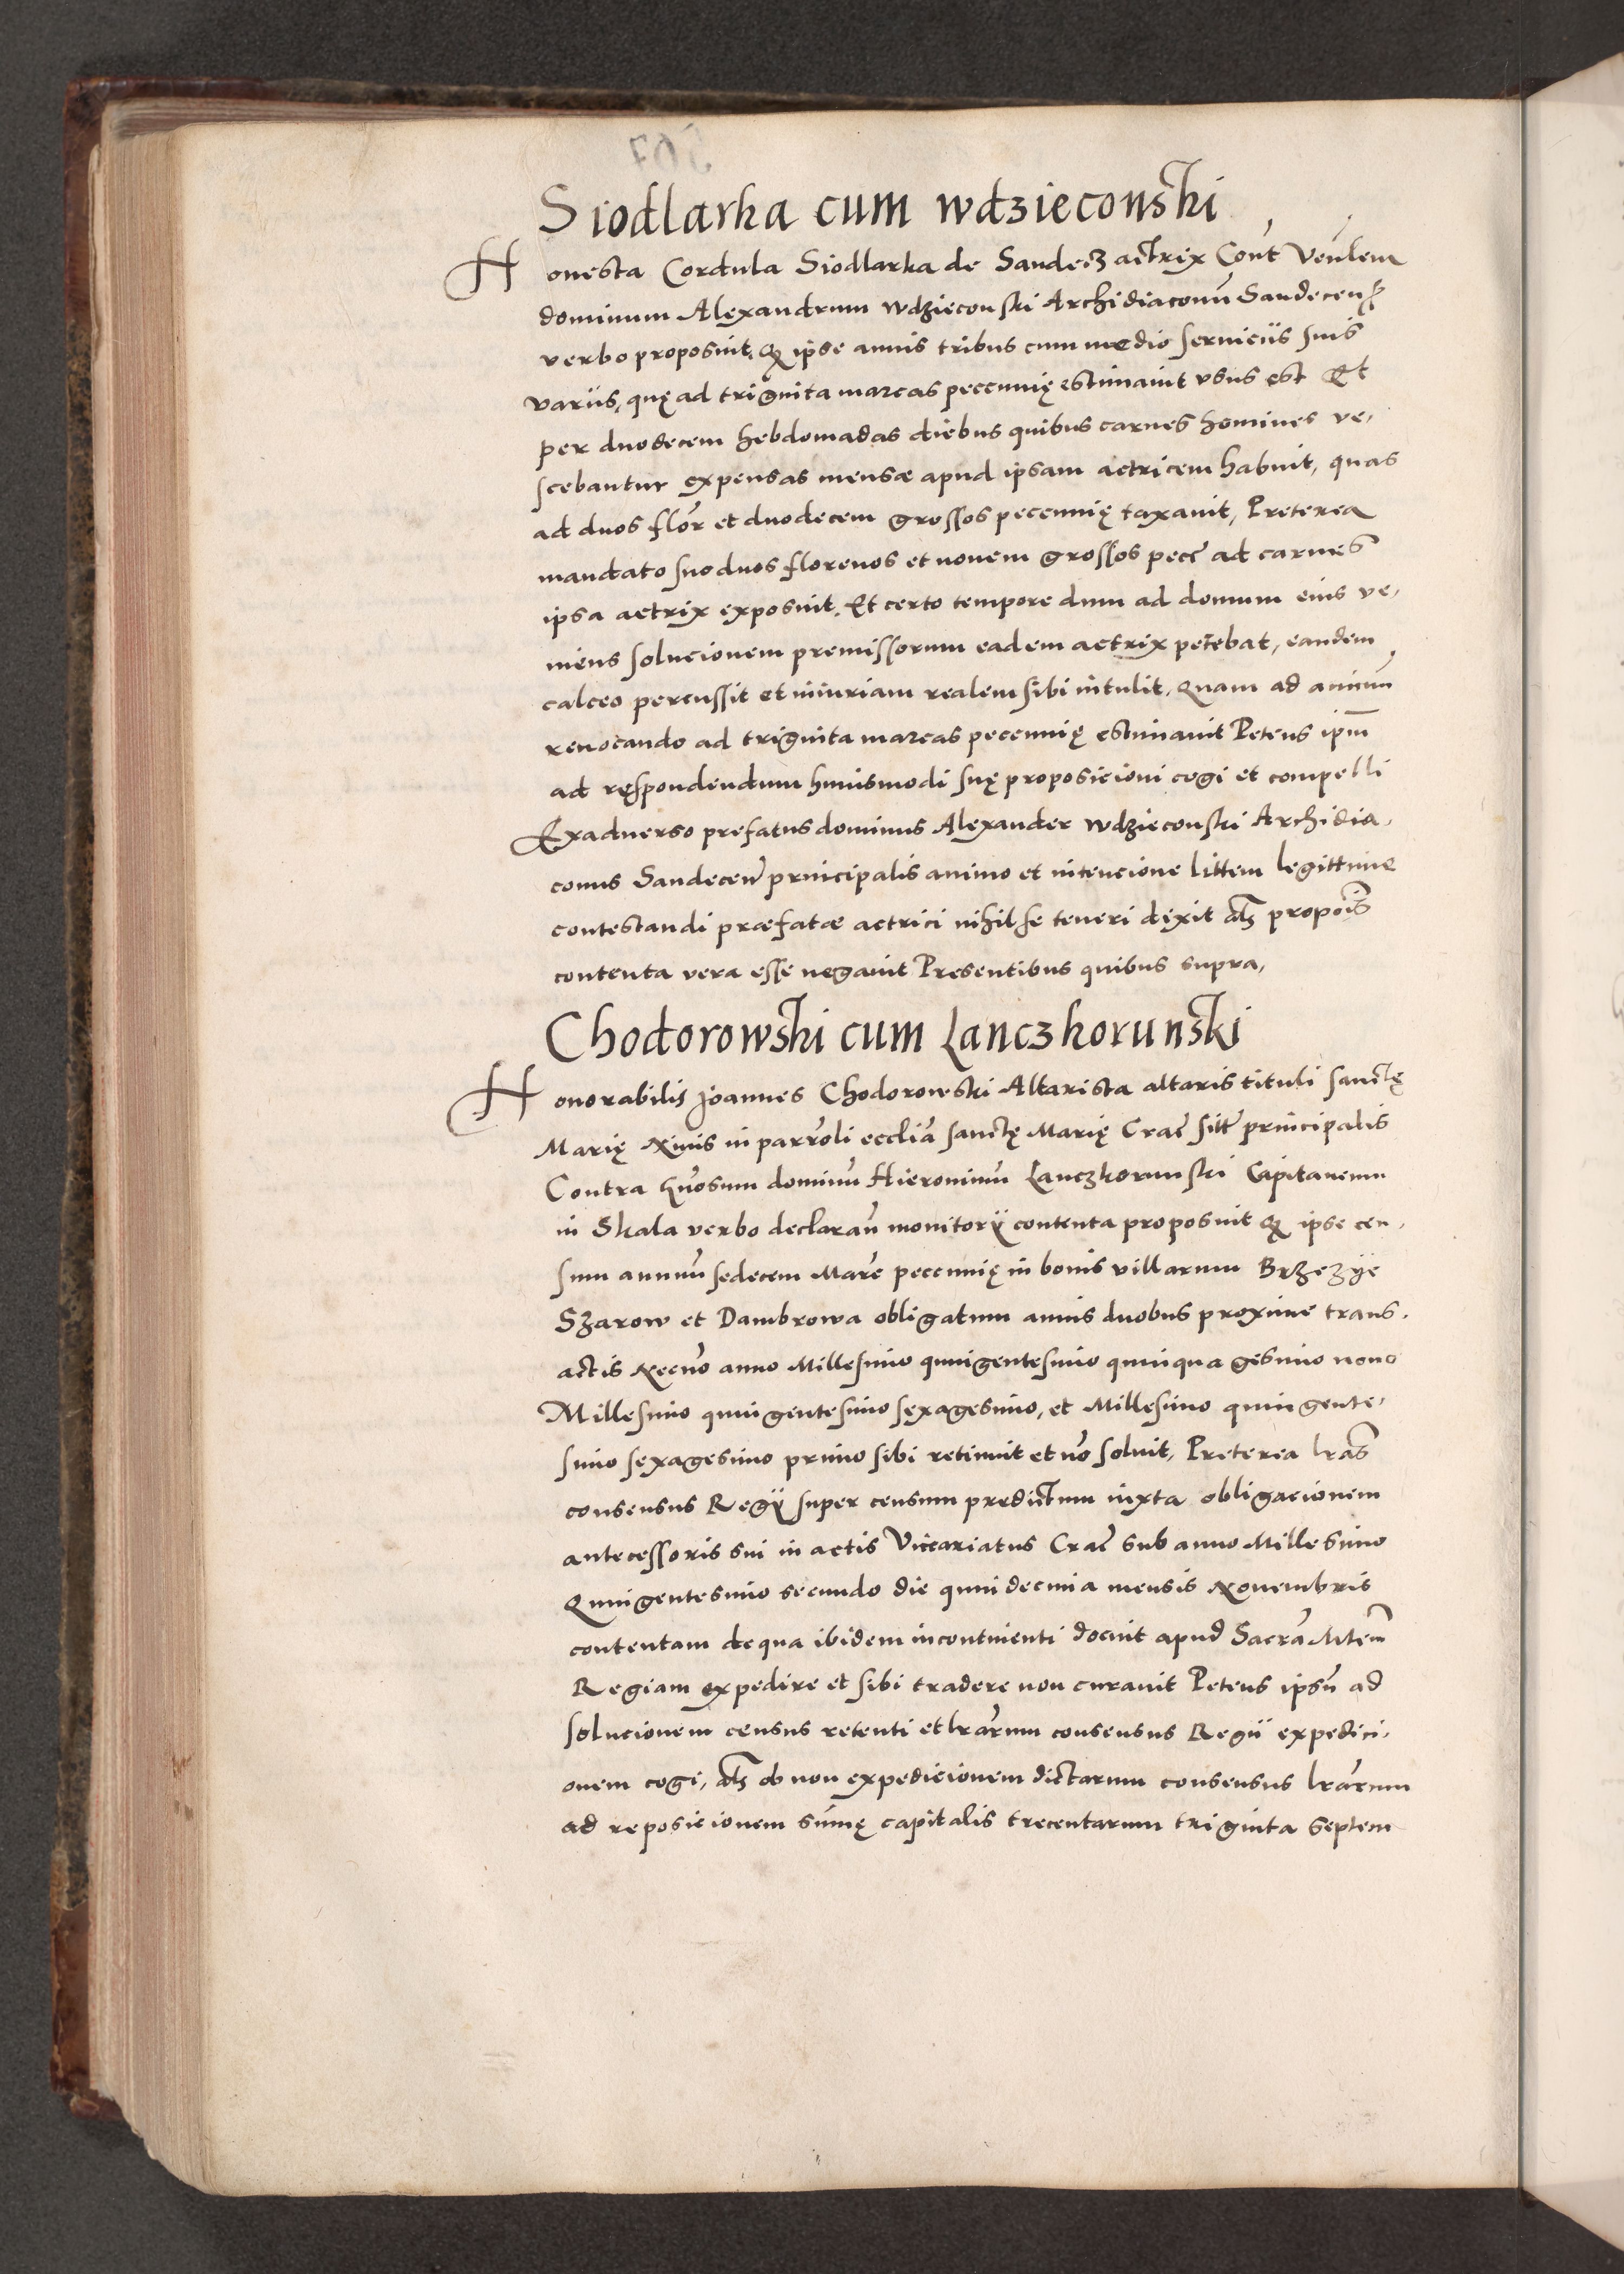 Siodlarka cum wdzieconski
Honesta Cordula Siodlarka de Sandecz actrix Cont Venlem
dominum Alexandrum wdzieconski Archidiaconu Sandecen
verbo proposuit, q ipse annis tribus cum medio seruiciis suis
variis, quę ad triginta marcas peccunię estimauit vsus est Et
per duodecem hebdomadas diebus quibus carnes homines ve,
scebantur expensas mensæ apud ipsam actricem habuit, quas
ad duos flor et duodecem grossos peccunię taxauit, Preterea
mandato suo duos florenos et nouem grossos pecc ad carnes
ipsa actrix exposuit, Et certo tempore dum ad domum eius ve,
niens solucionem premissorum eadem actrix petebat, eandem
calceo percussit et iniuriam realem sibi intulit, Quam ad animu
reuocando ad triginta marcas peccunię estimauit Petens ipm
ad respondendum huiusmodi suę proposicioni cogi et compelli
Exaduerso prefatus dominus Alexander wdzieconski Archidia,
conus Sandecen principalis animo et intencione littem legittime
contestandi præfatæ actrici nihil se teneri dixit als propois
contenta vera esse negauit Presentibus quibus supra,
Chodorowski cum Lanczkorunski
Honorabilis Joannes Chodorowski Altarista altaris tituli sanctę
Marię Niuis in parroli ecclia sanctę Marię Crac sitt principalis
Contra gnosum dominu Hieronimu Lanczkorunski Capitaneum
in Skala verbo declaran monitorij contenta proposuit q ipse cen,
sum annuu sedecem Marc peccunię in bonis villarum Brzezye
Szarow et Dambrowa obligatum annis duobus proxime trans,
actis Necno anno Millesimo quingentesimo quinquagesimo nono
Millesimo quingentesimo sexagesimo, et Millesimo quingente,
simo sexagesimo primo sibi retinuit et no soluit, Preterea lras
consensus Regij super censum predictum iuxta obligacionem
antecessoris sui in actis Vicariatus Crac sub anno Millesimo
Quingentesimo secundo die quindecima mensis Nouembris
contentam de qua ibidem incontinenti docuit apud Sacra Mtem
Regiam expedire et sibi tradere non curauit Petens ipsu ad
solucionem census retenti et lrarum consensus Regii expedici,
onem cogi, als ob non expedicionem dictarum consensus lrarum
ad reposicionem sumę capitalis trecentarum triginta septem